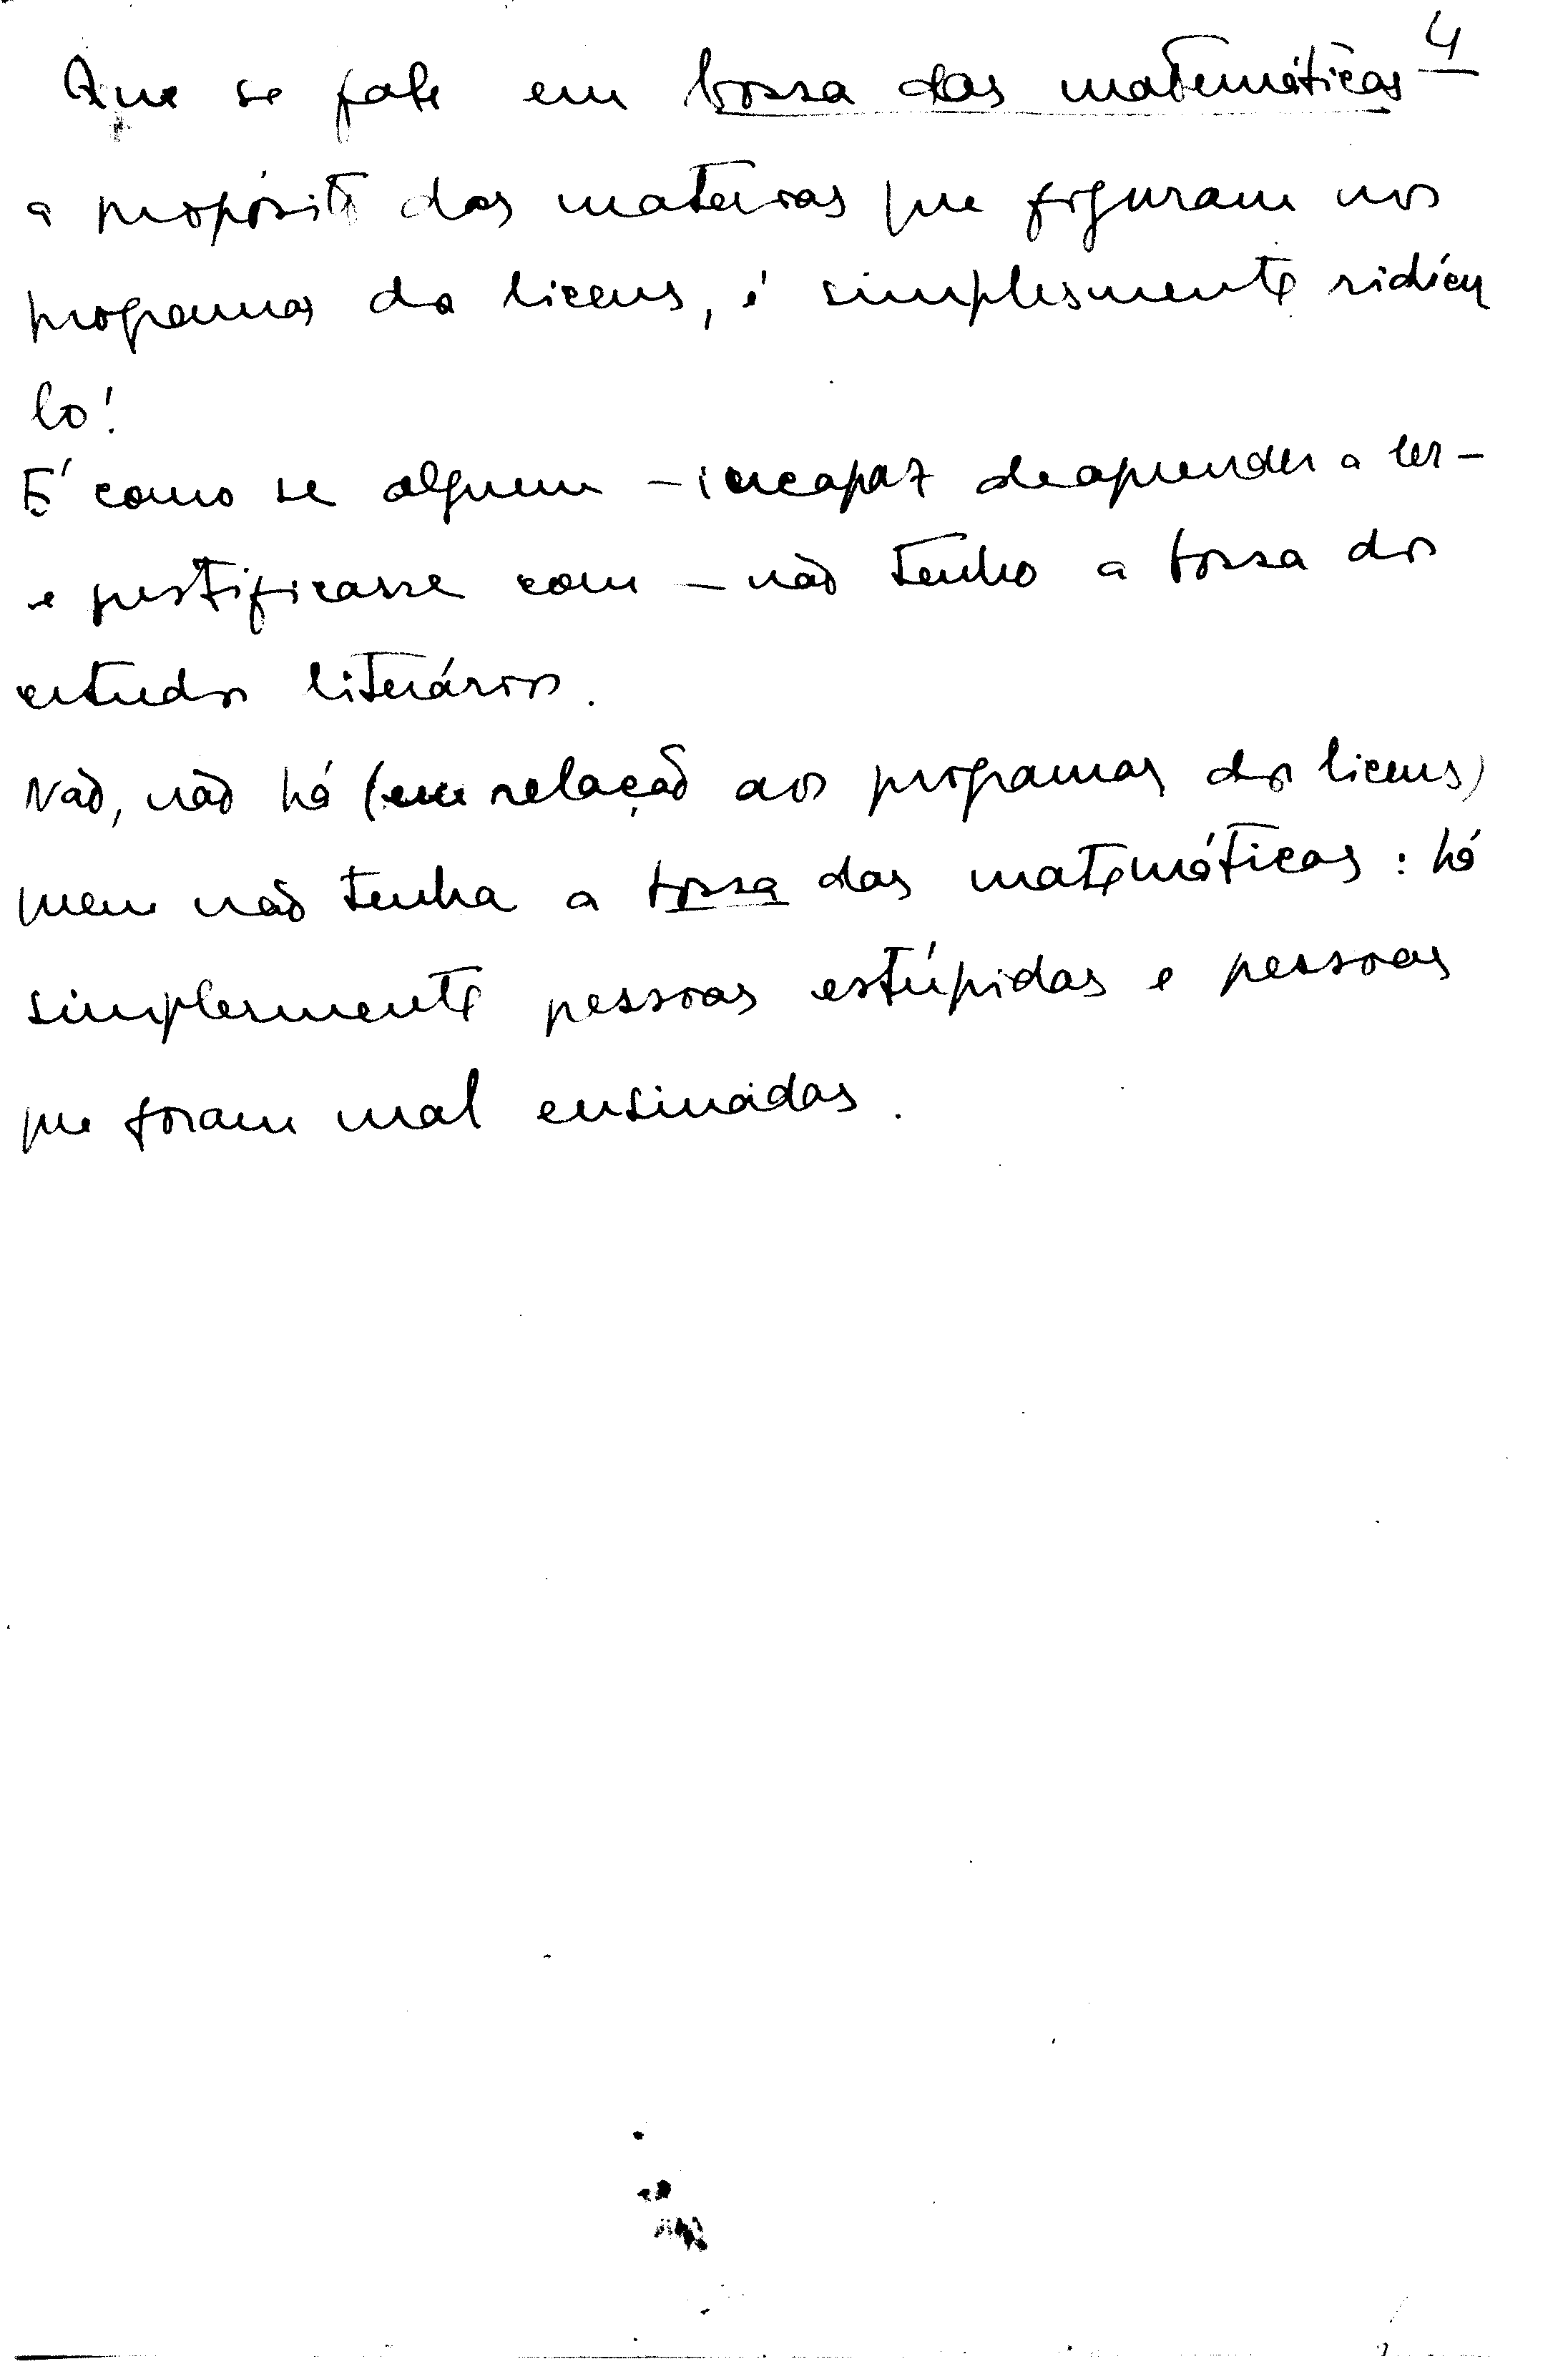 4
Que se fale em bossa das matemáticas
a propósito das matérias que figuram nos
programas do liceus, é simplesmente ridícu
lo!
É como se alguem – incapaz de aprender a ler –
se justificasse com – não tenho a bossa dos
estudos literários.
Não, não há (em relação aos programas dos liceus)
quem não tenha a bossa das matemáticas : há
simplesmente pessoas estúpidas e pessoas
que foram mal ensinadas.